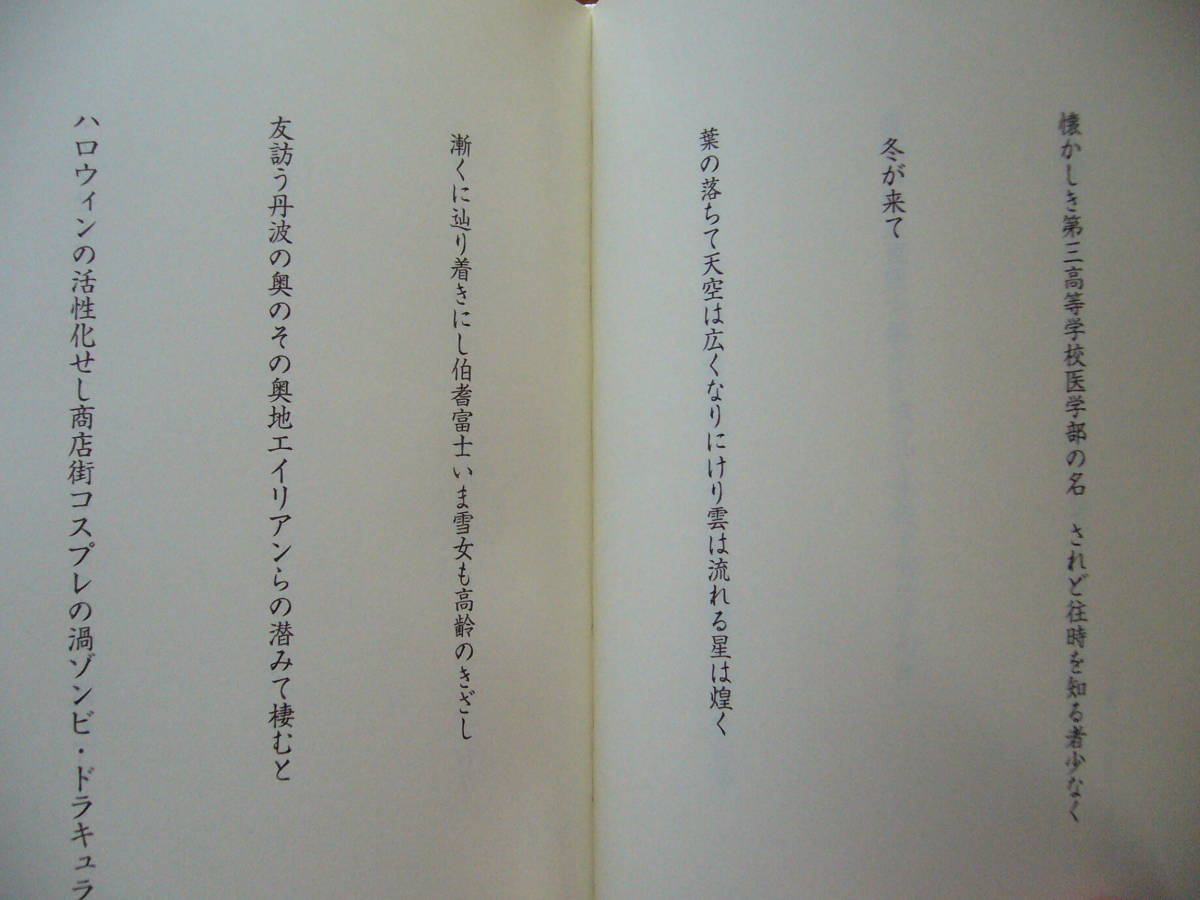 懐かしき第三高等学校医学部の名　されど往時を知る者少なく
冬が来て
葉の落ちて天空は広くなりにけり雲は流れる星は煌く
漸くに辿り着きにし伯耆富士いま雪女も高齢のきざし
友訪う丹波の奥のその奥地エイリアンらの潜みて棲むと
ハロウィンの活性化せし商店街コスプレの渦ゾンビ・ドラキュラ